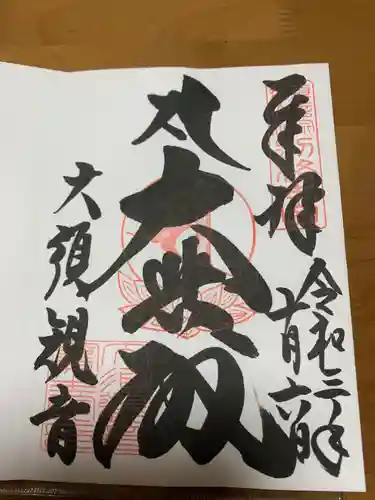 奉拝
令和二年
十月六日
大悲殿
大須観音